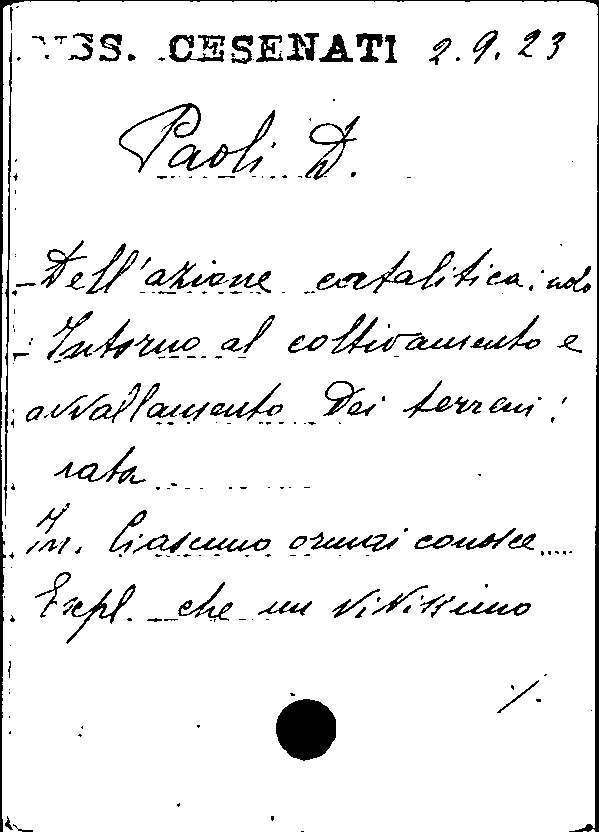 MSS. CESENATI 2.9.23
Paoli D.
- Dell'azione catalitica:
- Intorno al coltivamento e
avvallamento Dei terreni:
In. Ciascuno ormai conosce.....
Expl. che un vivissimo
./.